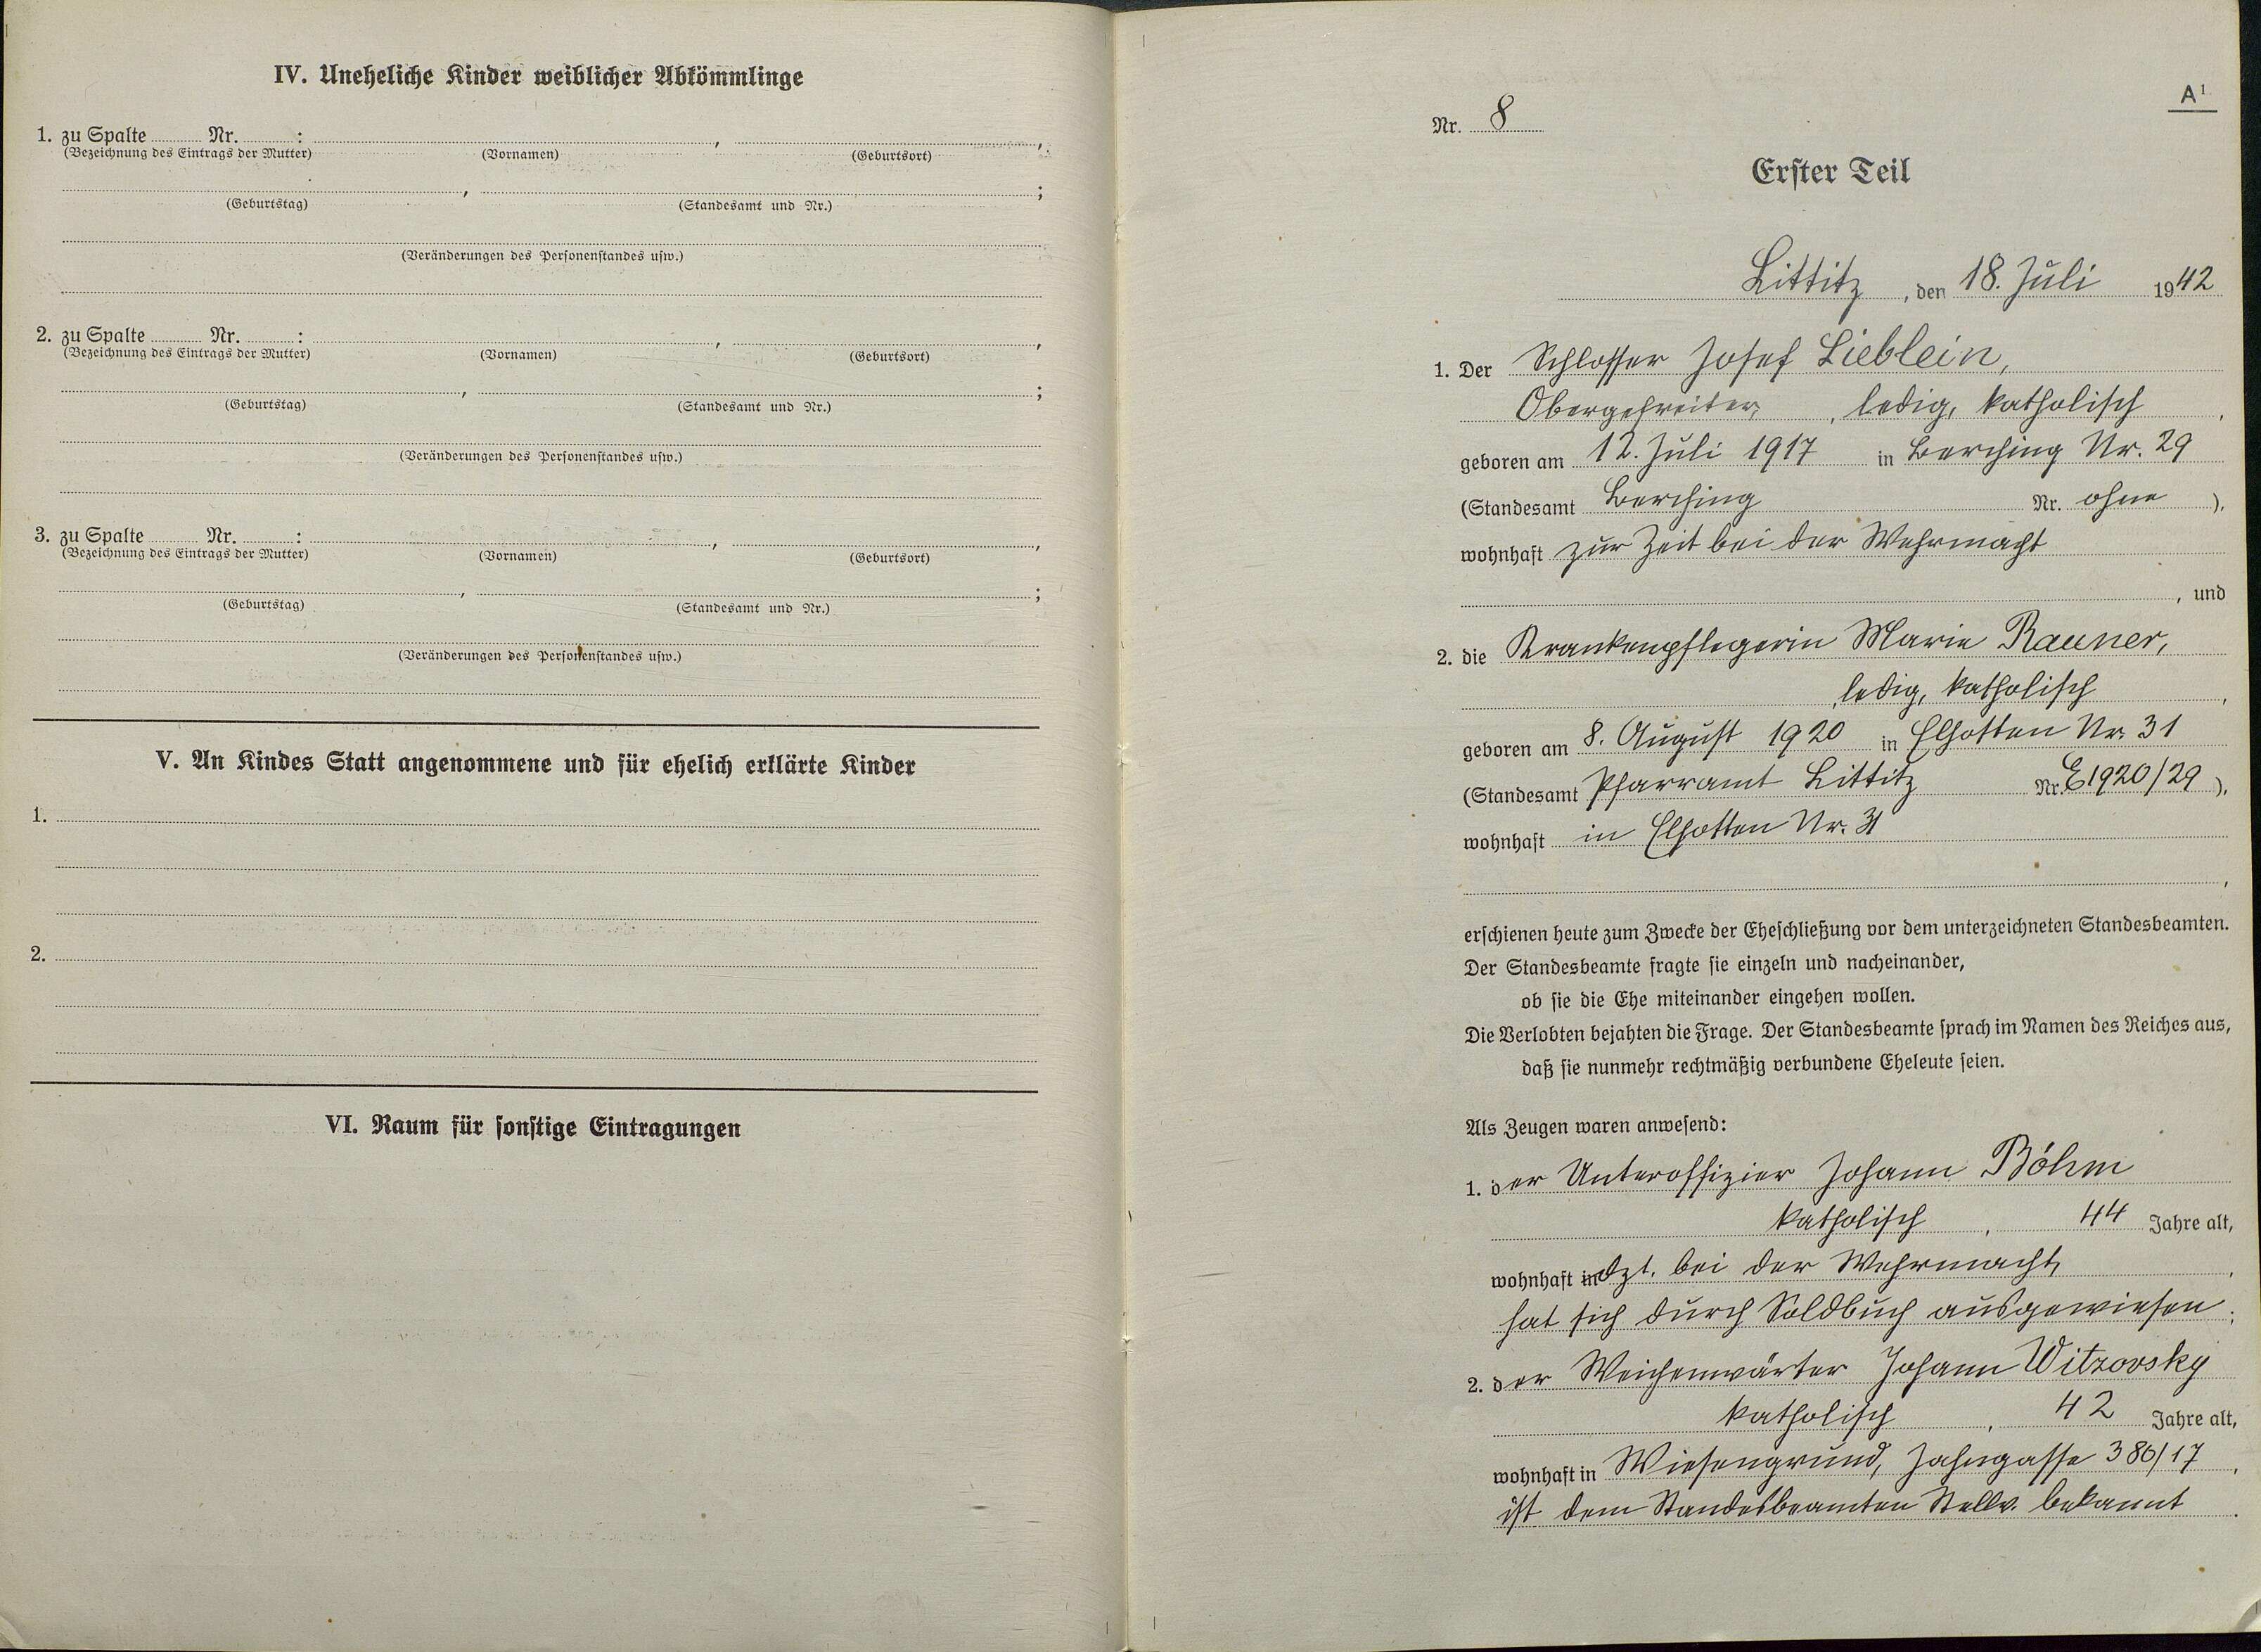 IV. Uneheliche Kinder weiblicher Abkömmlinge
1. zu Spalte Nr. : , ,
(Bezeichnung des Eintrags der Mutter) (Vornamen) (Geburtsort)
, ;
(Geburtstag) (Standesamt und Nr.)
(Veränderungen des Personenstandes usw.)
2. zu Spalte Nr. : , ,
(Bezeichnung des Eintrags der Mutter) (Vornamen) (Geburtsort)
, ;
(Geburtstag) (Standesamt und Nr.)
(Veränderungen des Personenstandes usw.)
3. zu Spalte Nr. : , ,
(Bezeichnung des Eintrags der Mutter) (Vornamen) (Geburtsort)
, ;
(Geburtstag) (Standesamt und Nr.)
(Veränderungen des Personenstandes usw.)
V. An Kindes Statt angenommene und für ehelich erklärte Kinder
1.
2.
VI. Raum für sonstige Eintragungen
A1
Nr. 8
Erster Teil
Littitz, den 18. Juli 1942
1. Der Schlosser Josef Lieblein,
Obergefreiter, ledig, katholisch,
geboren am 12. Juli 1917 in Berching Nr. 29
(Standesamt Berching Nr. ohne),
wohnhaft zur Zeit bei der Wehrmacht
, und
2. die Krankenpflegerin Marie Rauner,
, ledig, katholisch,
geboren am 8. August 1920 in Elhotten Nr. 31
(Standesamt Pfarramt Littitz Nr. E 1920/29),
wohnhaft in Elhotten Nr. 31
,
erschienen heute zum Zwecke der Eheschließung vor dem unterzeichneten Standesbeamten.
Der Standesbeamte fragte sie einzeln und nacheinander,
ob sie die Ehe miteinander eingehen wollen.
Die Verlobten bejahten die Frage. Der Standesbeamte sprach im Namen des Reiches aus,
daß sie nunmehr rechtmäßig verbundene Eheleute seien.
Als Zeugen waren anwesend:
1. der Unteroffizier Johann Böhm
katholisch, 44 Jahre alt,
wohnhaft in dzt. bei der Wehrmacht,
hat sich durch Soldbuch ausgewiesen;
2. der Weichenwärter Johann Witzovsky
katholisch, 42 Jahre alt,
wohnhaft in Wiesengrund, Jahngasse 380/17,
ist dem Standesbeamten Stellv. bekannt.